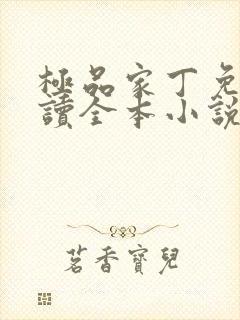 極品家丁免
讀全本小說
茗香寶兒